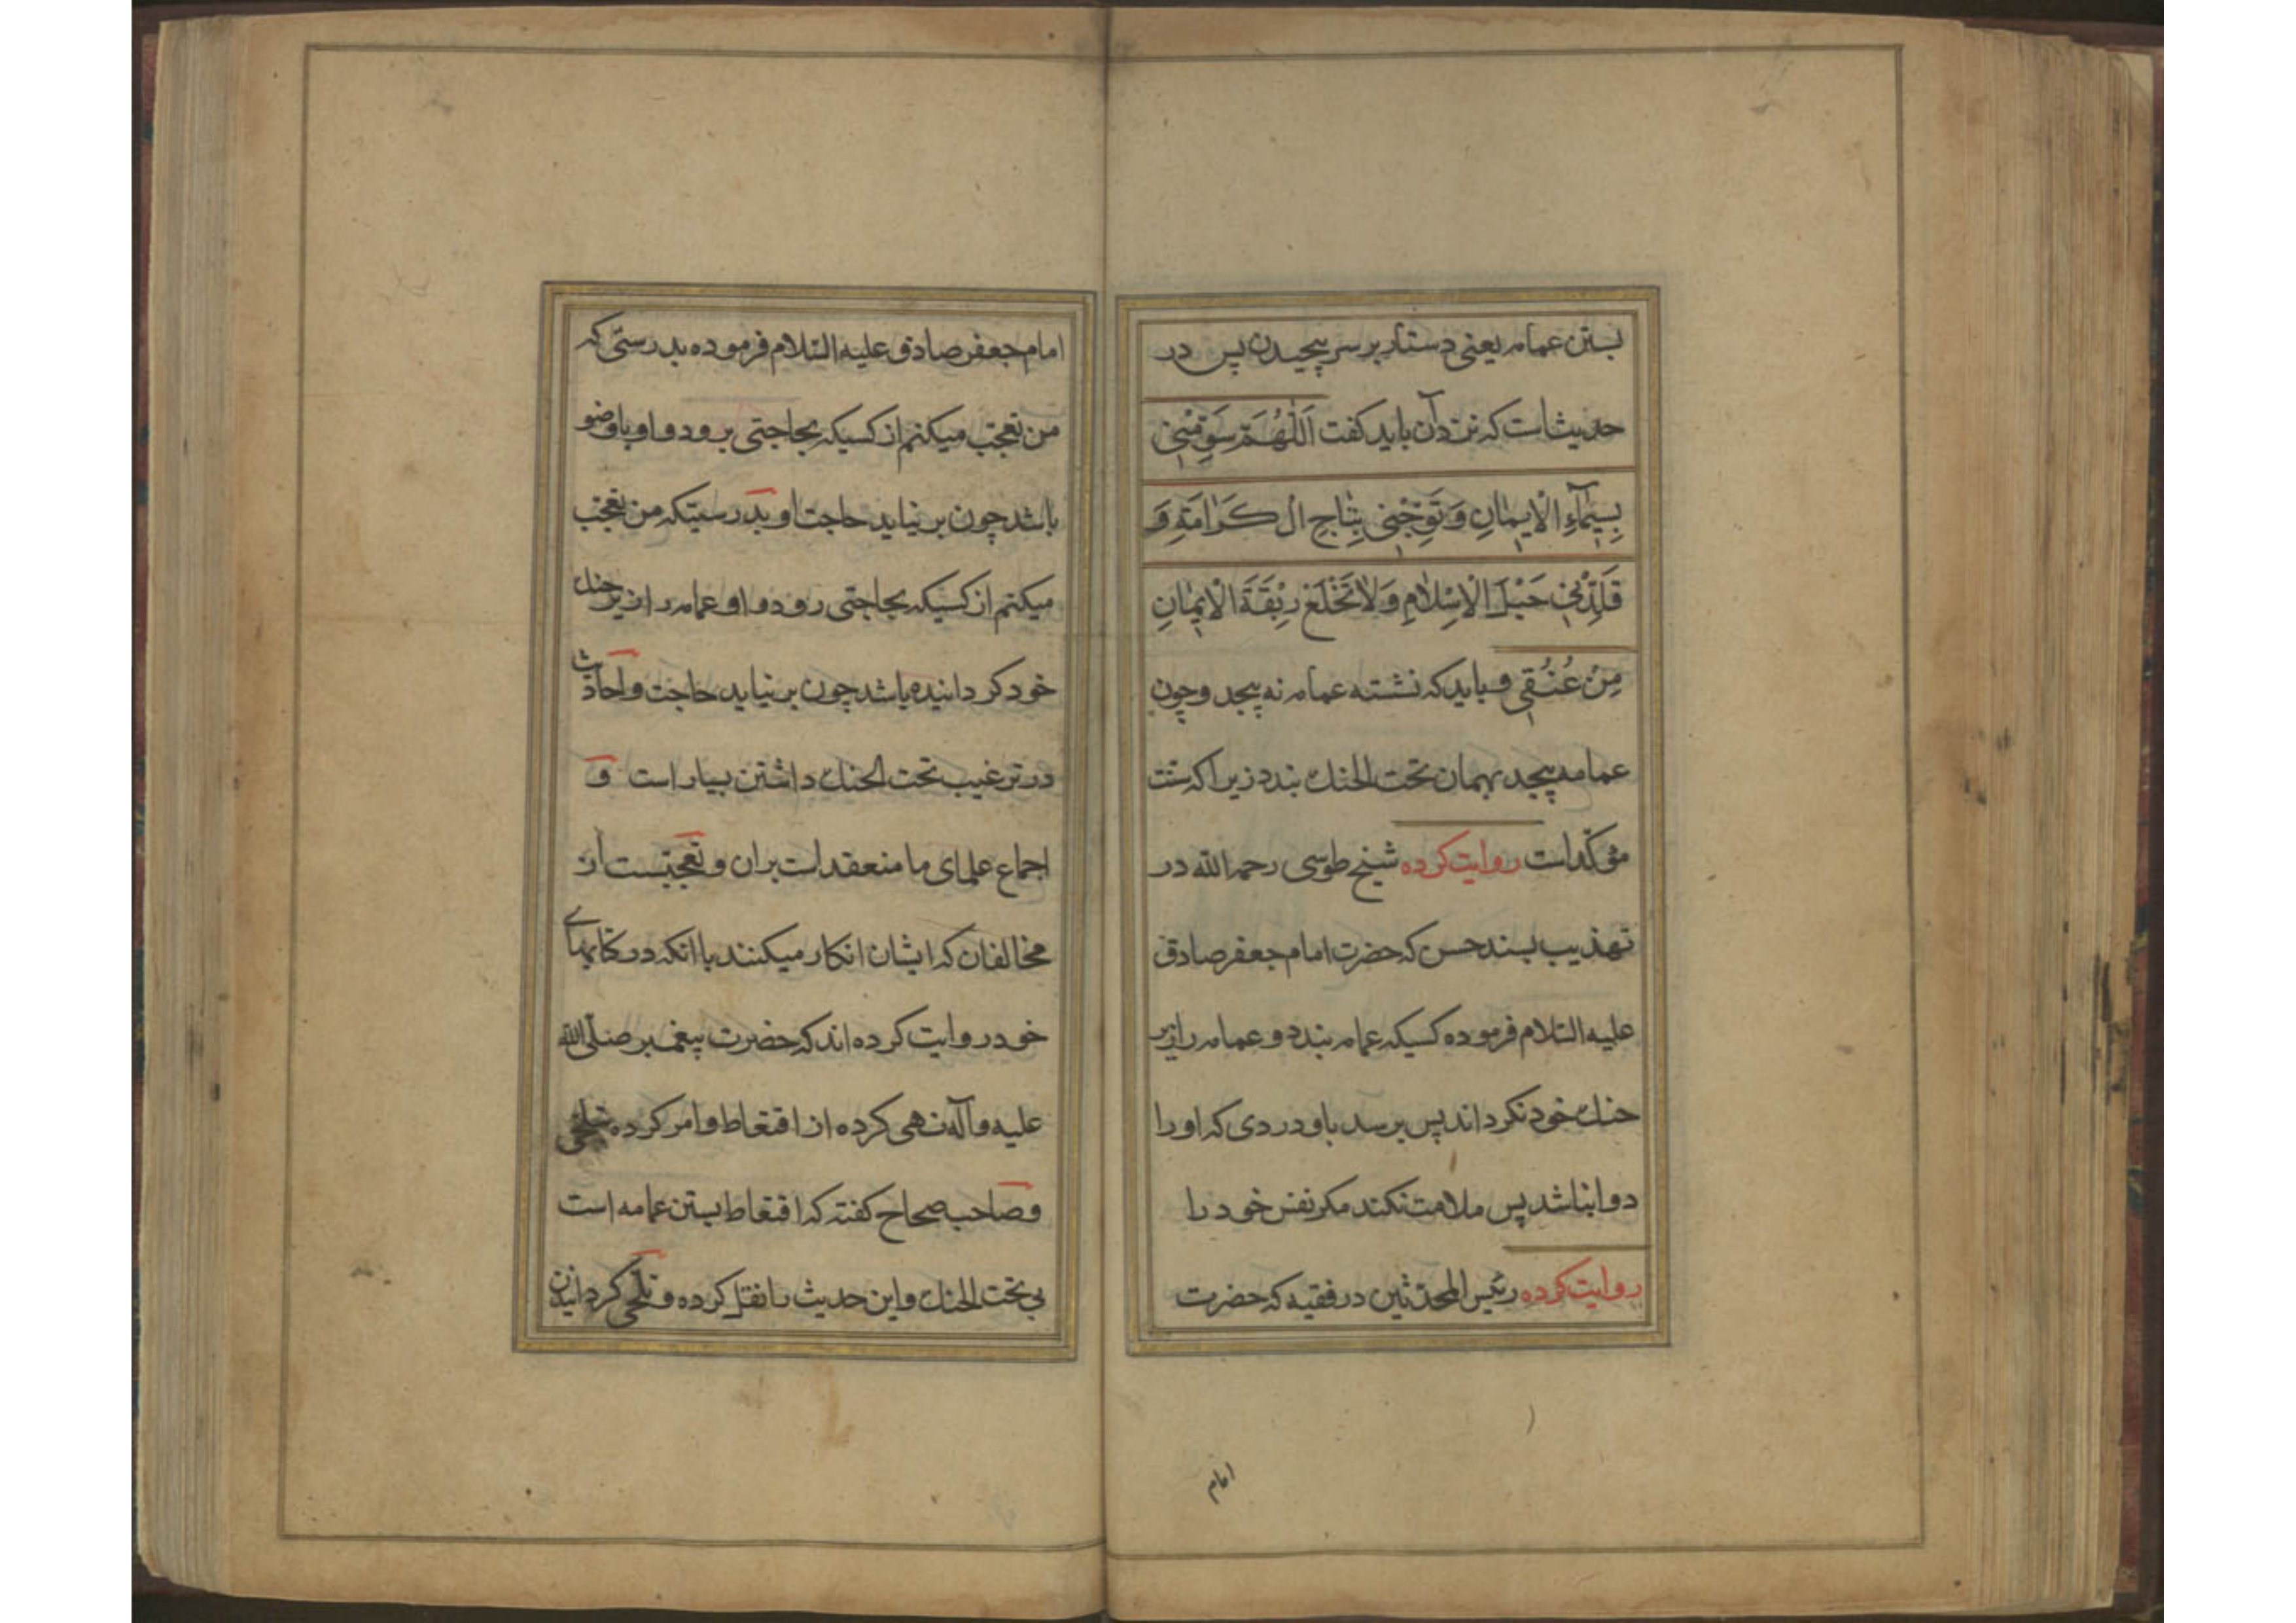 بستن عمامه یعنی دستار بر سر پیچیدن پس در
حدیث است که نزد آن باید کفت اَللّٰهُمَّ سَوِّمْنِی
بِسِیمٰآءِ الْاِیمٰانِ وَ تَوِّجْنِی بِتٰاجِ الْکَرٰامَةِ وَ
قَلِّدْنِی حَبْلَ الْاِسْلٰامِ وَلٰا تَخْلَعْ رِبْقَةَ الْاِیمٰانِ
مِنْ عُنُقِی و باید که نشسته عمامه نه پیچد و چون
عمامه پیچد بهمان تحت الحنک بندد زیرا که سنت
مؤکّد است روایت کرده شیخ طوسی رحمه الله در
تهذیب بسند حسن که حضرت امام جعفر صادق
علیه السّلام فرموده کسیکه عمامه بندد و عمامه را زیر
حنک خود نکرداند پس برسد باو دردی که او را
دوا نباشد پس ملامت نکند مکر نفس خود را
روایت کرده رئیس المحدّثین در فقیه که حضرت
امام
امام جعفر صادق علیه السّلام فرموده بدرستی که
من تعجّب میکنم از کسیکه بحاجتی برود و او با وضو
باشد چون بر نیاید حاجت او و بدرستیکه من تعجّب
میکنم از کسیکه بحاجتی رود و او عمامه را زیر حنک
خود کردانیده باشد چون بر نیاید حاجت و احادیث
در ترغیب تحت الحنک داشتن بسیار است و
اجماع علمای ما منعقد است بران و تعجّبست از
مخالفان که ایشان انکار میکنند با انکه در کتابهای
خود روایت کرده اند که حضرت پیغمبر صلّی الله
علیه و آله نهی کرده از اقتعاط و امر کرده بتلحّی
و صاحب صحاح کفته که اقتعاط بستن عمامه است
بی تحت الحنک و این حدیث را نقل کرده و تلحّی کردانیدن